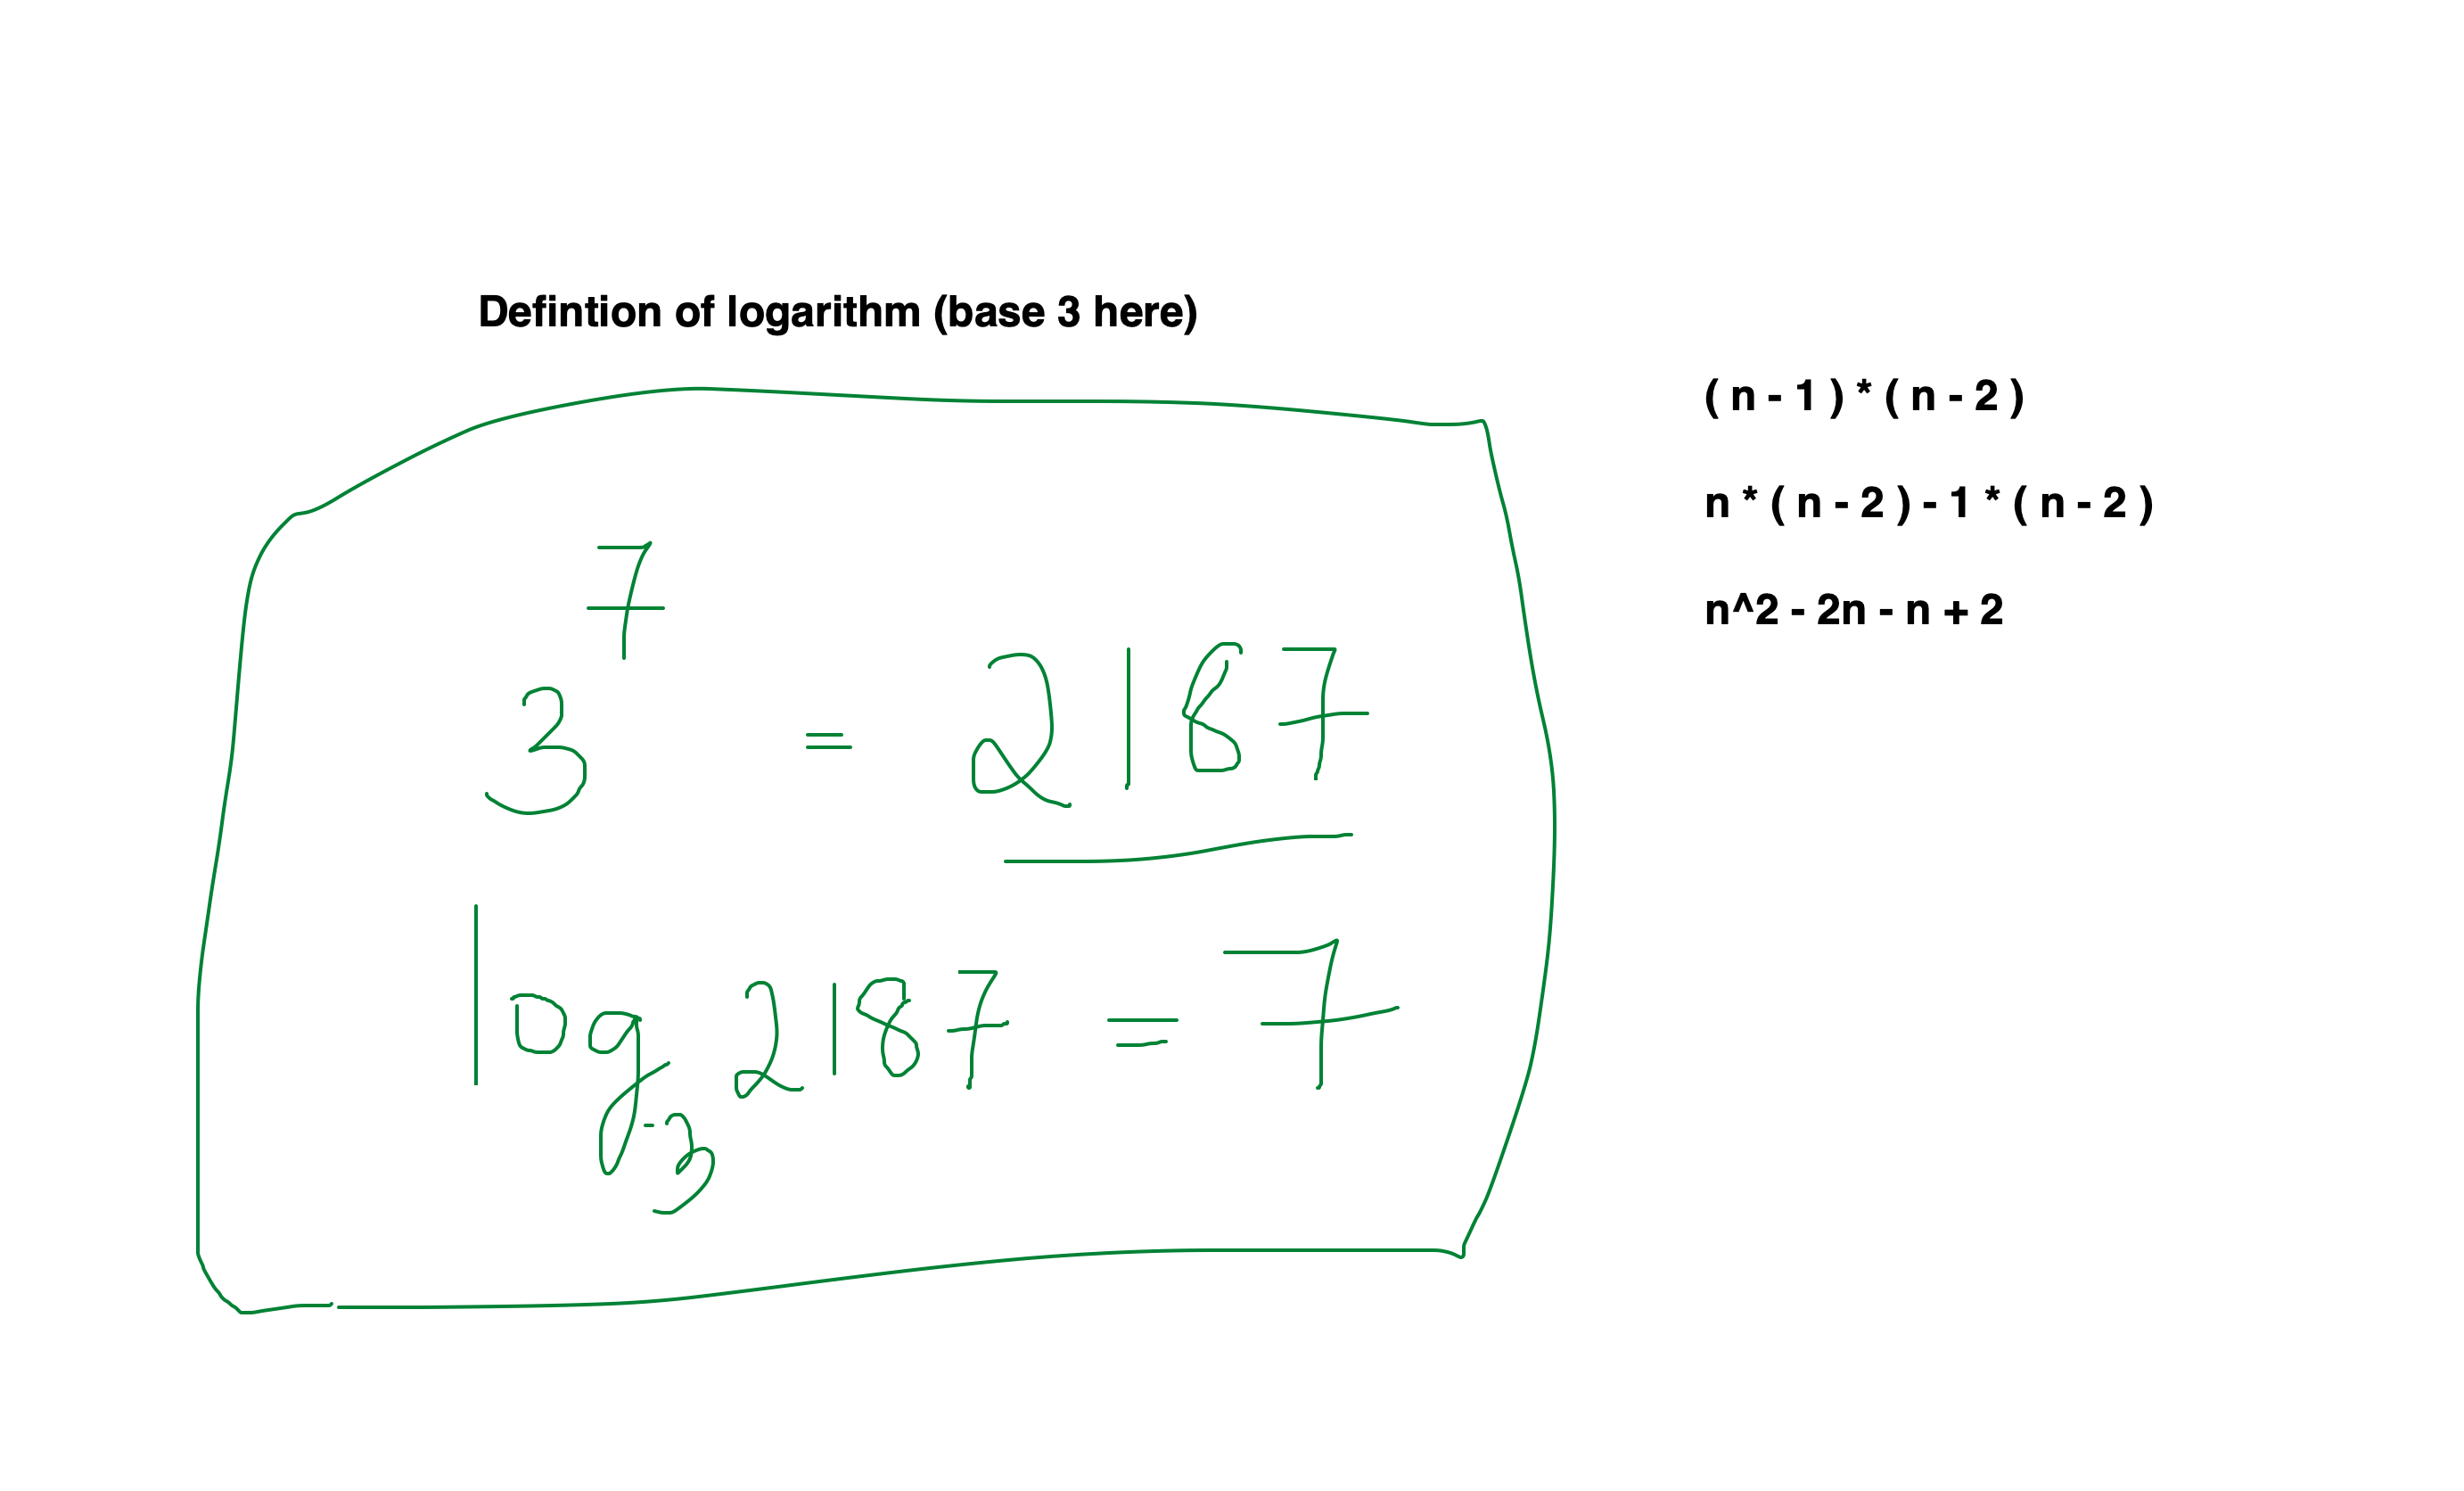 Defintion of logarithm (base 3 here)
3^7 = 2187
log_3 2187 = 7
( n - 1 ) * ( n - 2 )
n * ( n - 2 ) - 1 * ( n - 2 )
n^2 - 2n - n + 2